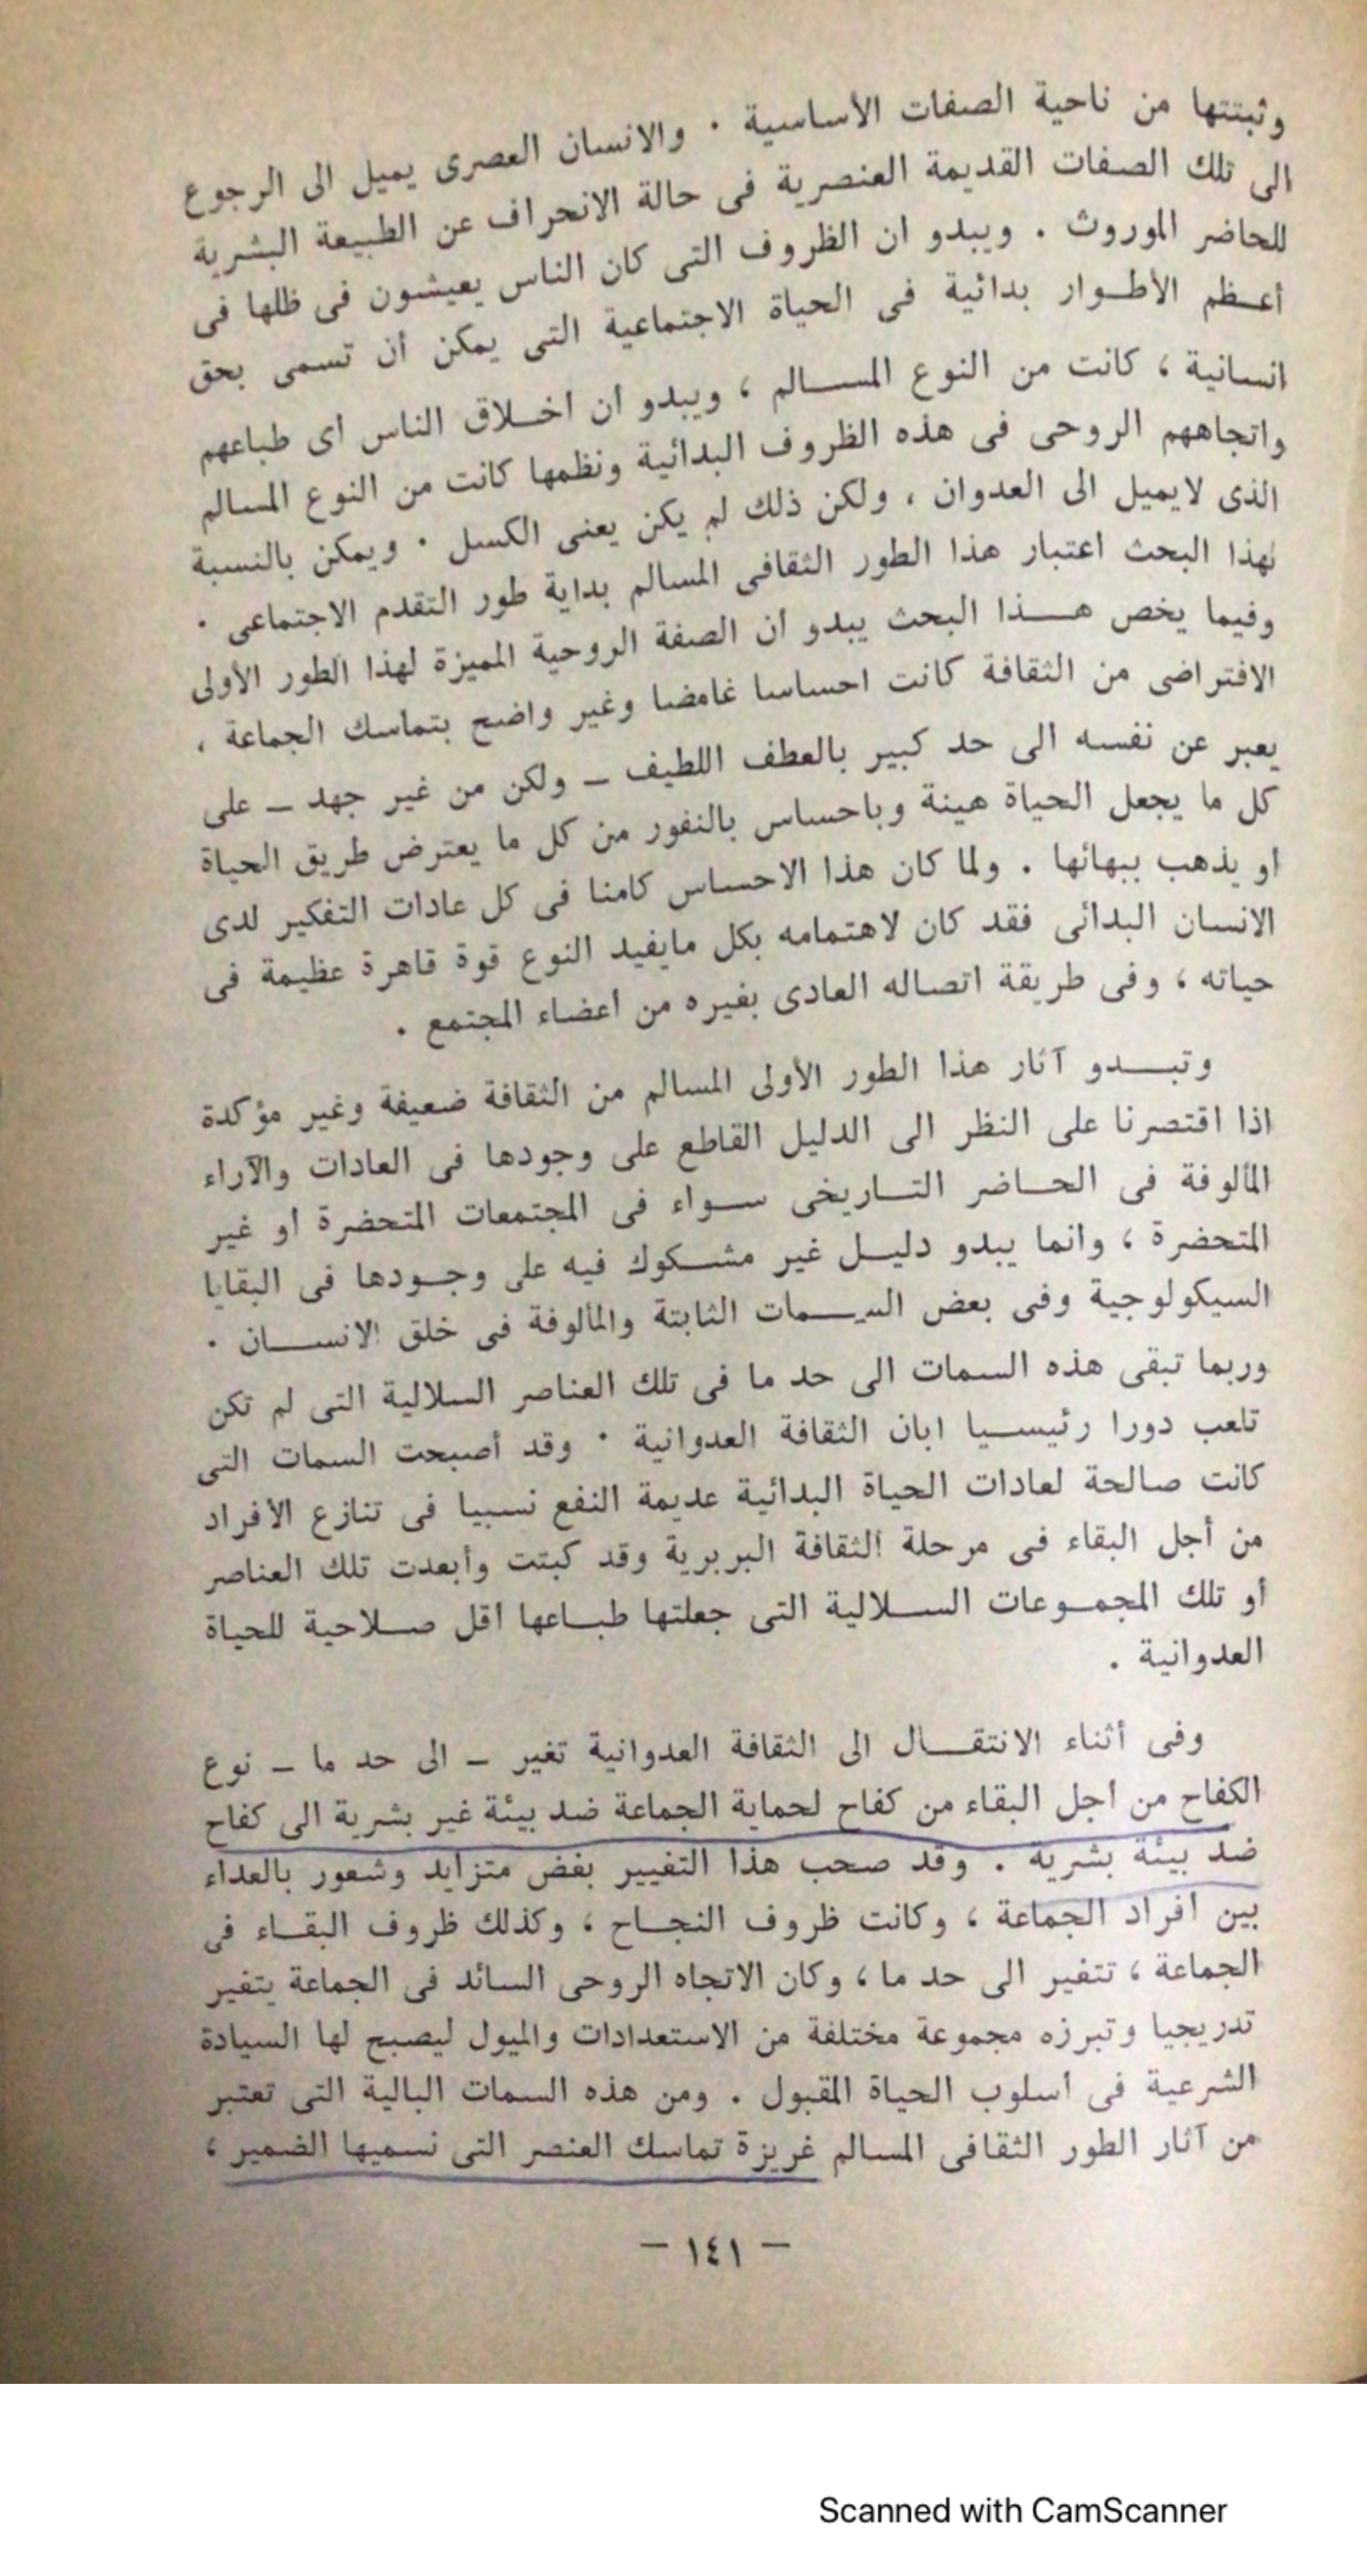 وثبتتها من ناحية الصفات الأساسية . والانسان العصرى يميل الى الرجوع
الى تلك الصفات القديمة العنصرية فى حالة الانحراف عن الطبيعة البشرية
للحاضر الموروث . ويبدو ان الظروف التى كان الناس يعيشون فى ظلها فى
أعـظم الأطـوار بدائية فى الحياة الاجتماعية التى يمكن أن تسمى بحق
انسانية ، كانت من النوع المسـالم ، ويبدو ان اخـلاق الناس اى طباعهم
واتجاههم الروحى فى هذه الظروف البدائية ونظمها كانت من النوع المسالم
الذى لايميل الى العدوان ، ولكن ذلك لم يكن يعنى الكسل . ويمكن بالنسبة
لهذا البحث اعتبار هذا الطور الثقافى المسالم بداية طور التقدم الاجتماعى .
وفيما يخص هـذا البحث يبدو ان الصفة الروحية المميزة لهذا الطور الأولى
الافتراضى من الثقافة كانت احساسا غامضا وغير واضح بتماسك الجماعة ،
يعبر عن نفسه الى حد كبير بالعطف اللطيف – ولكن من غير جهد – على
كل ما يجعل الحياة هينة وباحساس بالنفور من كل ما يعترض طريق الحياة
او يذهب ببهائها . ولما كان هذا الاحساس كامنا فى كل عادات التفكير لدى
الانسان البدائى فقد كان لاهتمامه بكل مايفيد النوع قوة قاهرة عظيمة فى
حياته ، وفى طريقة اتصاله العادى بغيره من اعضاء المجتمع .
وتبـدو آثار هذا الطور الأولى المسالم من الثقافة ضعيفة وغير مؤكدة
اذا اقتصرنا على النظر الى الدليل القاطع على وجودها فى العادات والآراء
المألوفة فى الحـاضر التـاريخى سـواء فى المجتمعات المتحضرة او غير
المتحضرة ، وانما يبدو دليـل غير مشـكوك فيه على وجـودها فى البقايا
السيكولوجية وفى بعض السـمات الثابتة والمألوفة فى خلق الانسـان .
وربما تبقى هذه السمات الى حد ما فى تلك العناصر السلالية التى لم تكن
تلعب دورا رئيسـيا ابان الثقافة العدوانية . وقد أصبحت السمات التى
كانت صالحة لعادات الحياة البدائية عديمة النفع نسبيا فى تنازع الأفراد
من أجل البقاء فى مرحلة الثقافة البربرية وقد كبتت وأبعدت تلك العناصر
أو تلك المجمـوعات السـلالية التى جعلتها طبـاعها اقل صـلاحية للحياة
العدوانية .
وفى أثناء الانتقـال الى الثقافة العدوانية تغير – الى حد ما – نوع
الكفاح من اجل البقاء من كفاح لحماية الجماعة ضد بيئة غير بشرية الى كفاح
ضد بيئة بشرية . وقد صحب هذا التغيير بغض متزايد وشعور بالعداء
بين افراد الجماعة ، وكانت ظروف النجـاح ، وكذلك ظروف البقـاء فى
الجماعة ، تتغير الى حد ما ، وكان الاتجاه الروحى السائد فى الجماعة يتغير
تدريجيا وتبرزه مجموعة مختلفة من الاستعدادات والميول ليصبح لها السيادة
الشرعية فى اسلوب الحياة المقبول . ومن هذه السمات البالية التى تعتبر
من آثار الطور الثقافى المسالم غريزة تماسك العنصر التى نسميها الضمير ،
– ١٤١ –
Scanned with CamScanner